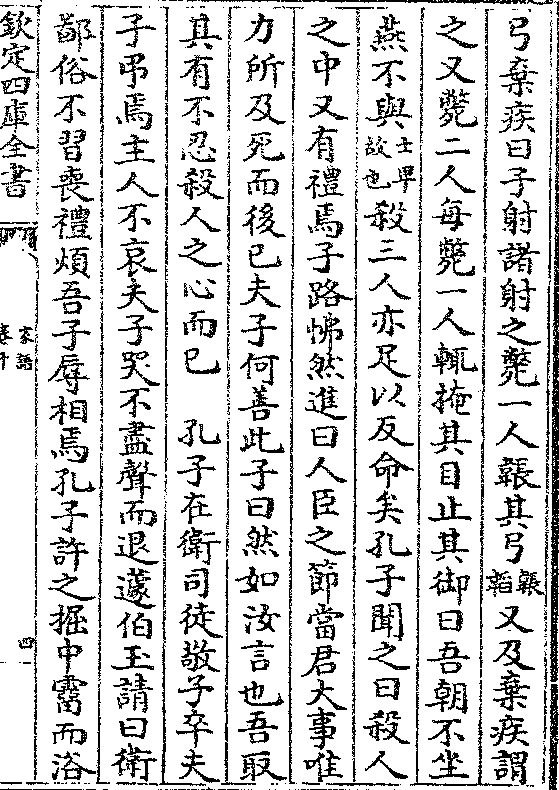 弓棄疾曰子射諸射之斃一人韔其弓韔韜又及棄疾謂
之又斃二人每斃一人輒掩其目止其御曰吾朝不坐
燕不與士卑故也殺三人亦足以反命矣孔子聞之曰殺人
之中又有禮焉子路怫然進曰人臣之節當君大事唯
力所及死而後已夫子何善此子曰然如汝言也吾取
其有不忍殺人之心而已　孔子在衛司徒敬子卒夫
子弔焉主人不哀夫子哭不盡聲而退蘧伯玉請曰衛
鄙俗不習喪禮煩吾子辱相焉孔子許之掘中霤而浴
欽定四庫全書
家語
卷十
四